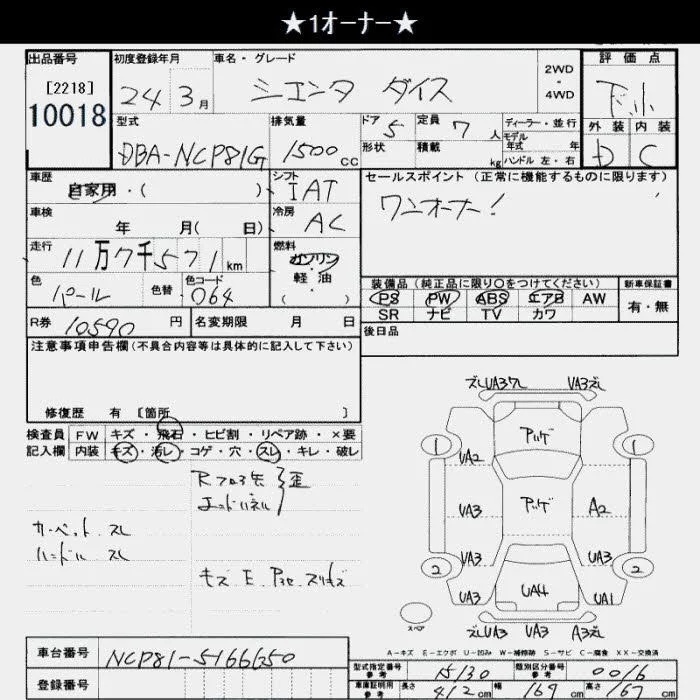 ★1オーナー★
出品番号 初度登録年月 車名・グレード 2WD・4WD 評価点
[2218]
10018
24年3月 シエンタ ダイス
型式 排気量 ドア 定員 ディーラー・並行 外装 内装
DBA-NCP81G 1500cc 5 7人 モデル年式 年 D C
形状 積載 kg ハンドル 左・右
車歴 シフト セールスポイント(正常に機能するものに限ります)
自家用・( ) IAT ワンオーナー!
車検 冷房
年 月(日) AC
走行 燃料
11万7千571km ガソリン・軽油
色 色替 色コード ( ) 装備品(純正品に限り○をつけてください) 新車保証書
パール 064 PS PW ABS エアB AW 有・無
R券 10590円 名変期限 月 日 SR ナビ TV カワ
注意事項申告欄(不具合内容等は具体的に記入して下さい) 後日品
修復歴 有 〔箇所 〕
検査員 FW キズ・飛石・ヒビ割・リペア跡・×要
記入欄 内装 キズ・汚レ・コゲ・穴・スレ・キレ・破レ
カーペット スレ
ハンドル スレ
ズレUA3ワレ UA3ズレ
アッゲ
1 1
UA2
アッゲ
UA3 A2
UA3 UA3
2 2
UA4
UA3 UA1
スペア
ズレUA3 UA3 A3ズレ
A-キズ E-エクボ U-凹み W-補修跡 S-サビ C-腐食 XX-交換済
車台番号 NCP81-5166650
登録番号
型式指定番号 参考 15130 類別区分番号 参考 0016
車庫証明用 参考 長さ 412cm 幅 169cm 高さ 167cm